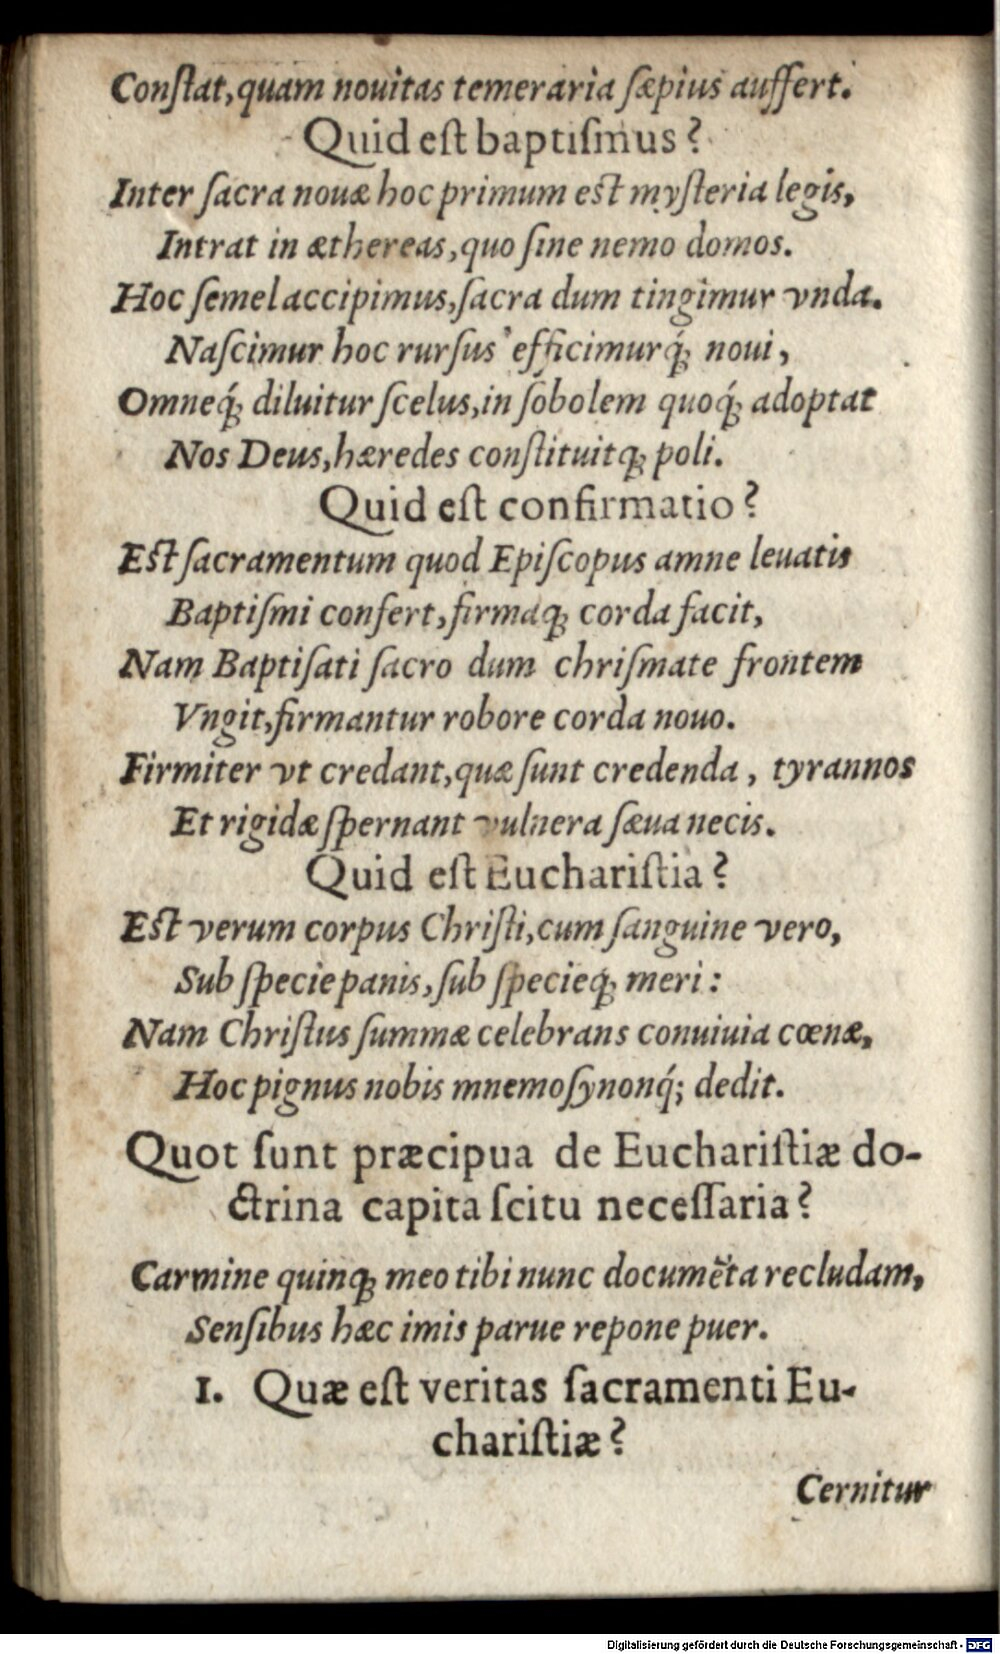 Conſtat, quam nouitas temeraria ſæpius auffert.
Quid eſt baptiſmus?
Inter ſacra nouæ hoc primum eſt myſteria legis,
Intrat in æthereas, quo ſine nemo domos.
Hoc ſemel accipimus, ſacra dum tingimur vnda.
Naſcimur hoc rurſus efficimurq́ꝫ noui,
Omneq́ꝫ diluitur ſcelus, in ſobolem quoq́ꝫ adoptat
Nos Deus, hæredes conſtituitqꝫ poli.
Quid eſt confirmatio?
Eſt ſacramentum quod Epiſcopus amne leuatis
Baptiſmi confert, firmaqꝫ corda facit,
Nam Baptiſati ſacro dum chriſmate frontem
Vngit, firmantur robore corda nouo.
Firmiter vt credant, quæ ſunt credenda, tyrannos
Et rigidæ ſpernant vulnera ſæua necis.
Quid eſt Euchariſtia?
Eſt verum corpus Chriſti, cum ſanguine vero,
Sub ſpecie panis, ſub ſpecieq́ꝫ meri:
Nam Chriſtus ſummæ celebrans conuiuia cœnæ,
Hoc pignus nobis mnemoſynonq́; dedit.
Quot ſunt præcipua de Euchariſtiæ do-
ctrina capita ſcitu neceſſaria?
Carmine quinqꝫ meo tibi nunc documẽta recludam,
Senſibus hæc imis parue repone puer.
1. Quæ eſt veritas ſacramenti Eu-
chariſtiæ?
Cernitur
Digitalisierung gefördert durch die Deutsche Forschungsgemeinschaft - DFG